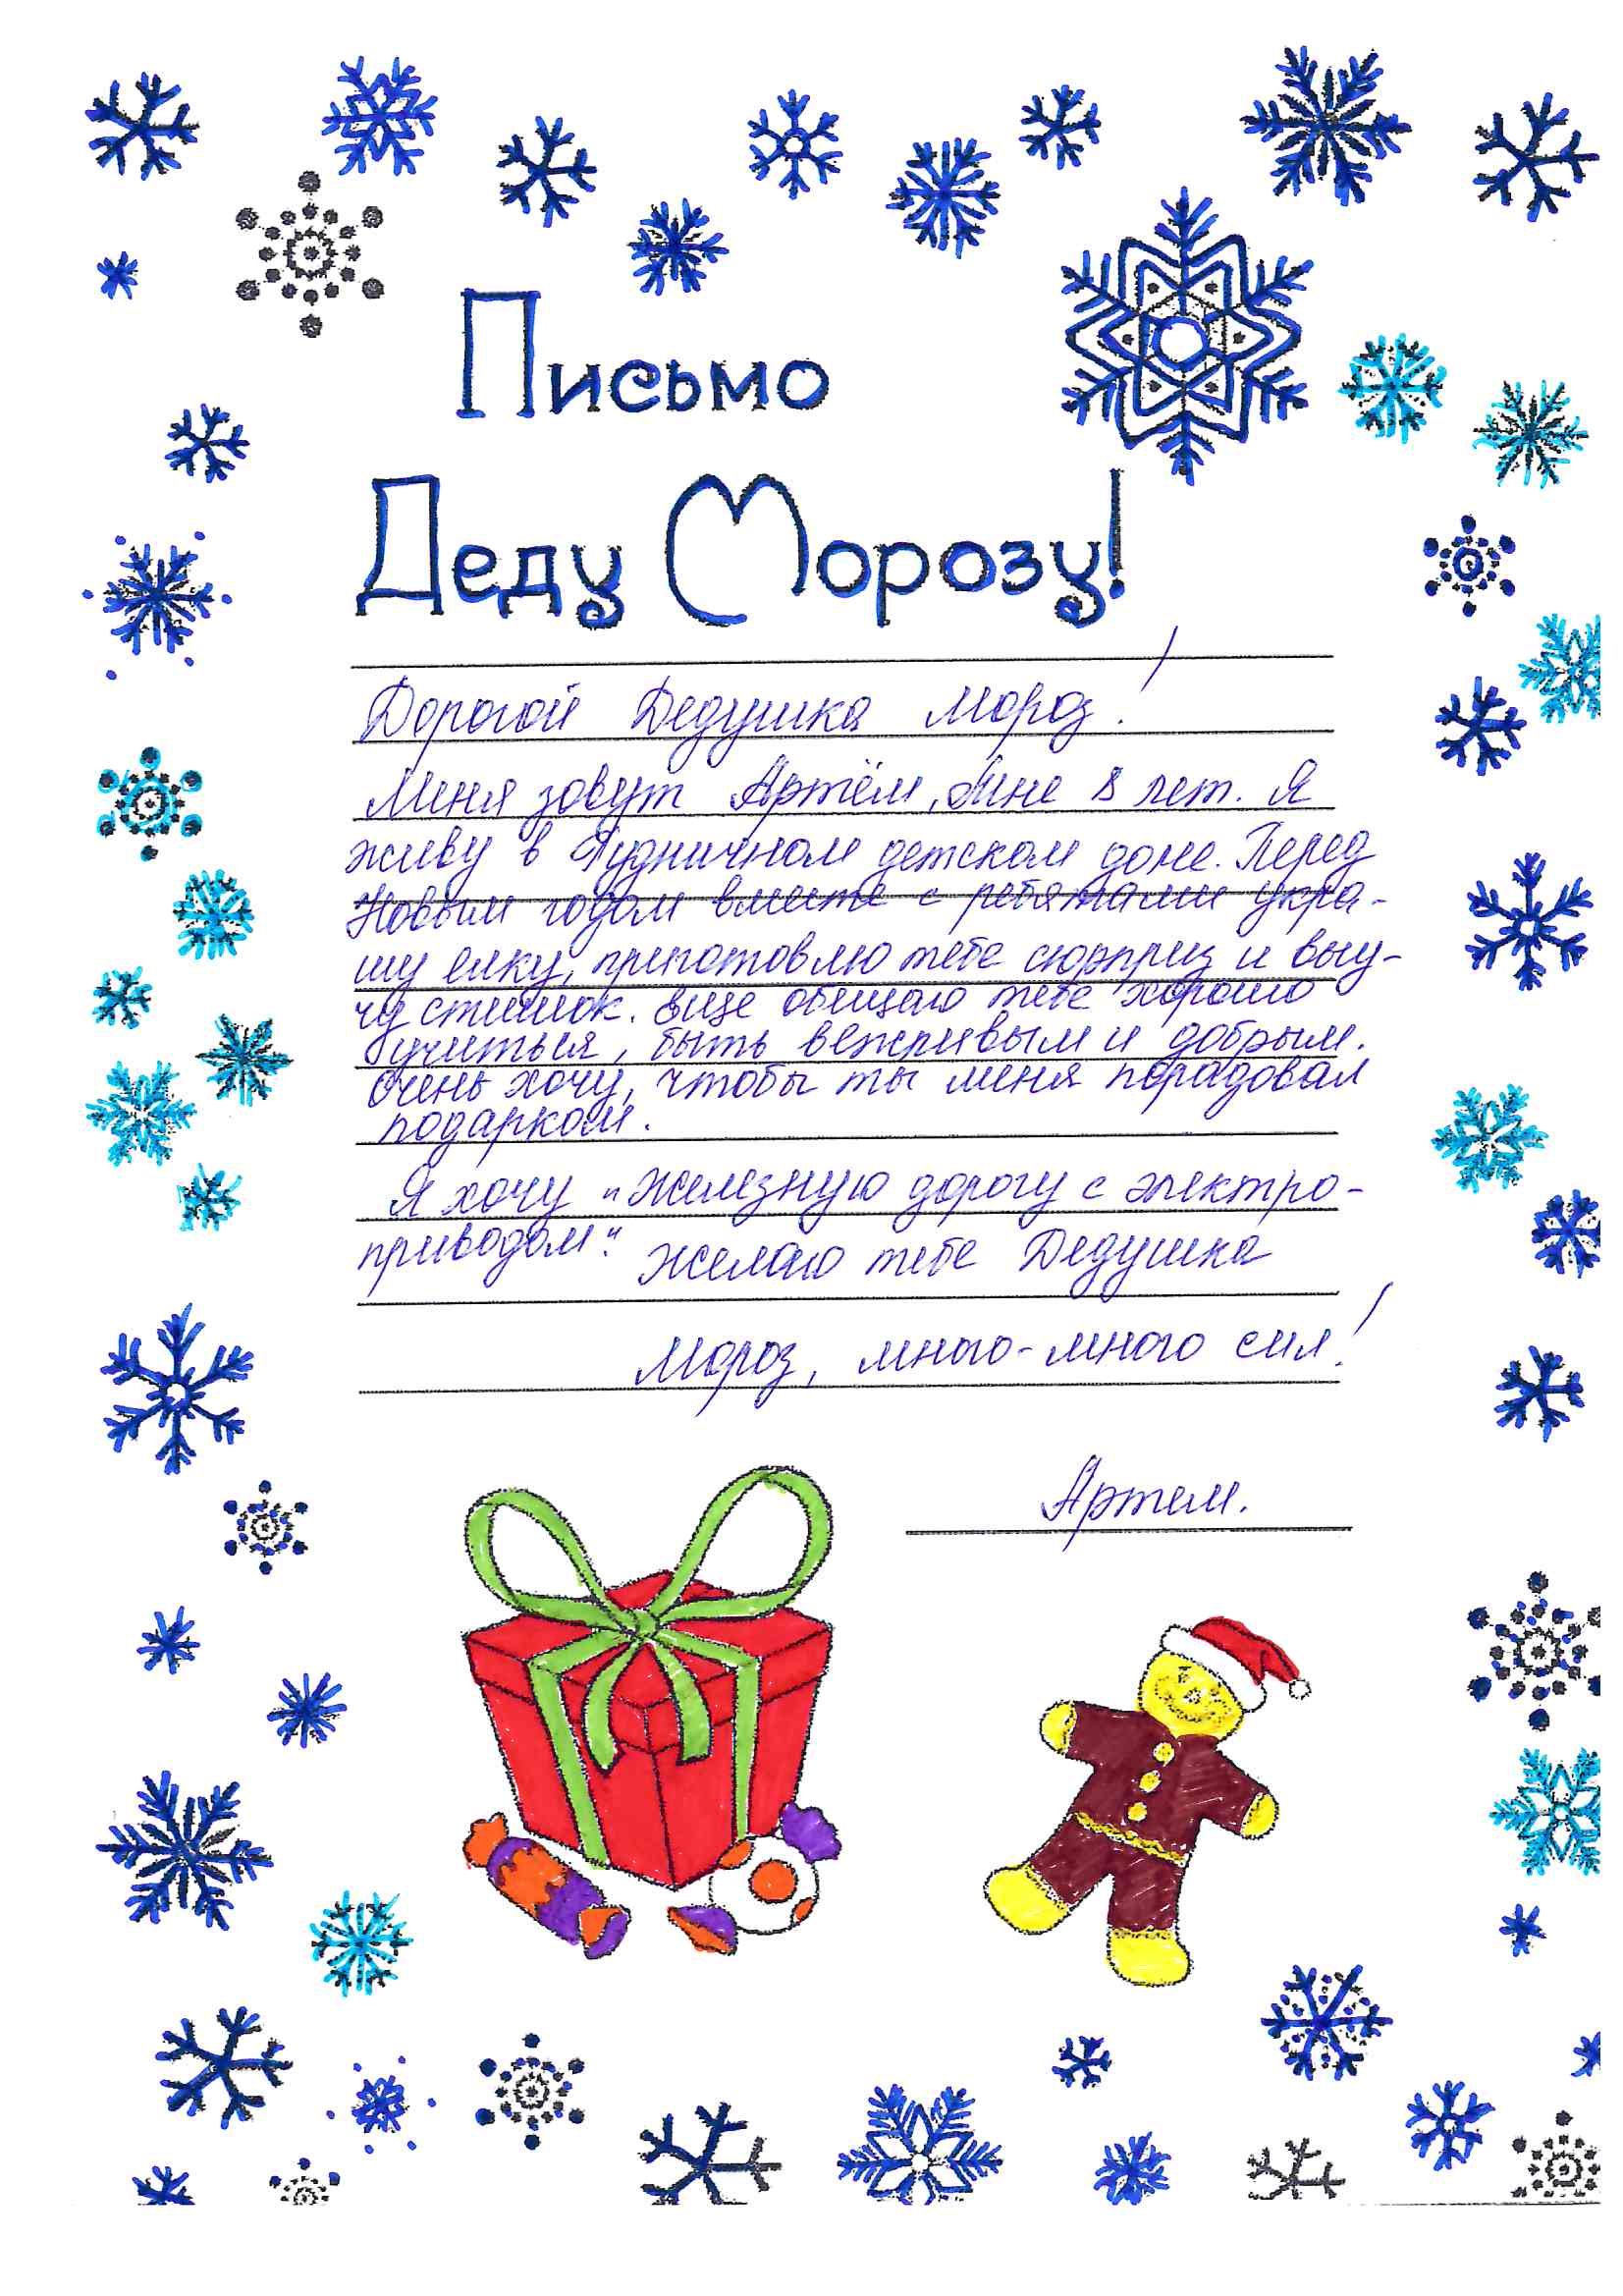 Письмо
Деду Морозу!
Дорогой Дедушка Мороз!
Меня зовут Артём, Мне 8 лет. Я
живу в Рудничном детском доме. Перед
Новым годом вместе с ребятами укра-
шу елку, приготовлю тебе сюрприз и выу-
чу стишок. Еще обещаю тебе хорошо
учиться, быть вежливым и добрым.
Очень хочу, чтобы ты меня порадовал
подарком.
Я хочу "Железную дорогу с электро-
приводом". Желаю тебе Дедушка
Мороз, много-много сил!
Артем.